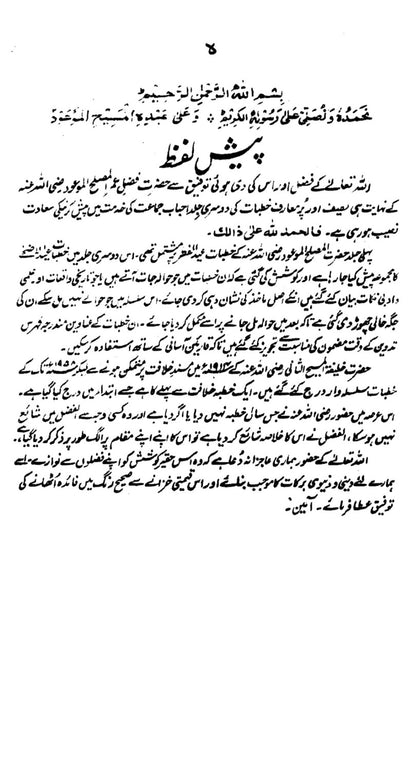 بِسْمِ اللّٰهِ الرَّحْمٰنِ الرَّحِيْمِ
نَحْمَدُهٗ وَ نُصَلِّىْ عَلٰى رَسُوْلِهِ الْكَرِيْمِ ؞ وَ عَلٰى عَبْدِهِ الْمَسِيْحِ الْمَوْعُوْدِ
پیش لفظ
اللہ تعالیٰ کے فضل اور اس کی دی ہوئی توفیق سے حضرت فضل عمر المصلح الموعود رضی اللہ عنہ
کے نہایت ہی لطیف اور پُر معارف خطبات کی دوسری جلد احباب جماعت کی خدمت میں پیش کرنیکی سعادت
نصیب ہو رہی ہے۔ فالحمد للہ علیٰ ذالک۔
پہلی جلد حضرت المصلح الموعود رضی اللہ عنہ کے خطبات عید الفطر پر مشتمل تھی۔ اس دوسری جلد میں خطبات عید الاضحیٰ
کا مجموعہ پیش کیا جا رہا ہے اور کوشش کی گئی ہے کہ ان خطبات میں جو حوالہ جات آتے ہیں یا جو تاریخی واقعات اور علمی
و ادبی نکات بیان کئے گئے ہیں انکے اصل ماخذ کی نشان دہی کر دی جائے۔ اس سلسلہ میں جو حوالے نہیں مل سکے ان کی
جگہ خالی چھوڑ دی گئی ہے تاکہ بعد میں حوالہ مل جانے پر اسے مکمل کر دیا جائے۔ ان خطبات کے عناوین مندرجہ فہرس
تدوین کے وقت مضمون کی مناسبت سے تجویز کئے گئے ہیں تاکہ قارئین آسانی کے ساتھ استفادہ کر سکیں۔
حضرت خلیفۃ المسیح الثانی رضی اللہ عنہ کے ۱۹۱۴ء میں مسند خلافت پر متمکن ہونے سے لیکر تک کے
خطبات سلسلہ وار درج کئے گئے ہیں۔ ایک خطبہ خلافت سے پہلے کا ہے جسے ابتدا میں درج کیا گیا ہے۔
اس عرصہ میں حضور رضی اللہ عنہ نے جس سال خطبہ نہیں دیا یا اگر دیا ہے اور وہ کسی وجہ سے الفضل میں شائع
نہیں ہو سکا، الفضل نے اس کا خلاصہ شائع کر دیا ہے تو اس کا اپنے اپنے مقام پر الگ طور پر ذکر کر دیا گیا ہے۔
اللہ تعالےٰ کے حضور ہماری عاجزانہ دُعا ہے کہ وہ اس حقیر کوشش کو اپنے فضلوں سے نوازے۔ اسے
ہمارے لئے دینی و دنیوی برکات کا موجب بنائے اور اس قیمتی خزانے سے صحیح رنگ میں فائدہ اٹھانے کی
توفیق عطا فرمائے۔ آمین۔